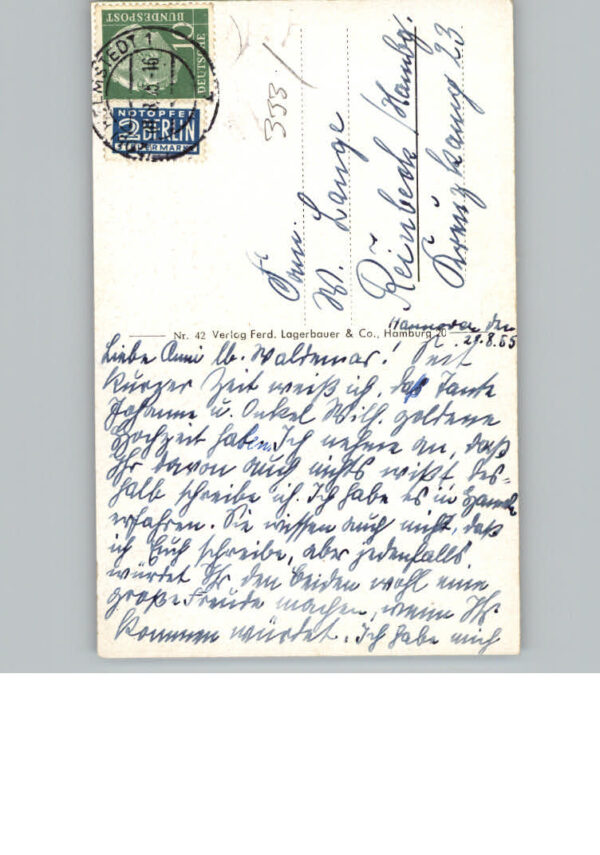 HELMSTEDT 1
DEUTSCHE
BUNDESPOST
10
NOTOPFER
2 BERLIN
STEUERMARKE
333
Fam.
W. Lange
Reinbeck /Hambg.
Kreuzkamp 23
Nr. 42 Verlag Ferd. Lagerbauer & Co., Hamburg 20
Hannover den
21.8.55
Liebe Anni lb. Waldemar! Seit
kurzer Zeit weiß ich, daß Tante
Johanne u. Onkel Wilh. goldene
Hochzeit haben. Ich nehme an, daß
Ihr davon auch nichts wißt, des-
halb schreibe ich. Ich habe es in
erfahren. Sie wissen auch nicht, daß
ich Euch schreibe, aber jedenfalls
würdet Ihr den beiden wohl eine
große Freude machen, wenn Ihr
kommen würdet. Ich habe mich